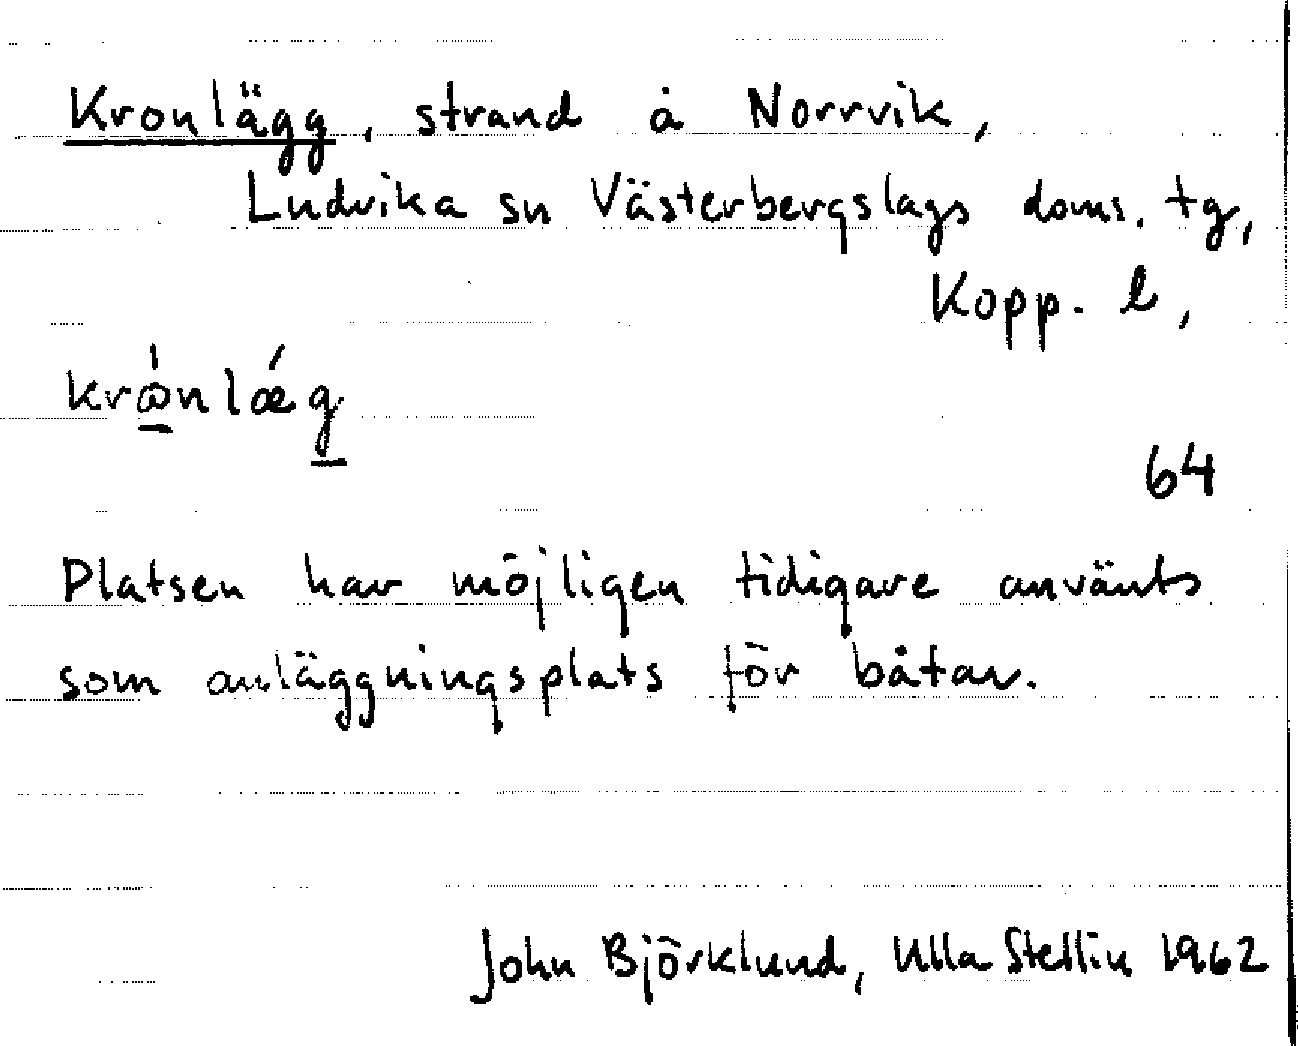 Kronlägg, strand å Norrvik,
Ludvika sn Västerbergslags doms. tg,
Kopp. l,
krǻnlǽg
64
Platsen har möjligen tidigare använts
som anläggningsplats för båtar.
John Björklund, Ulla Stellin 1962